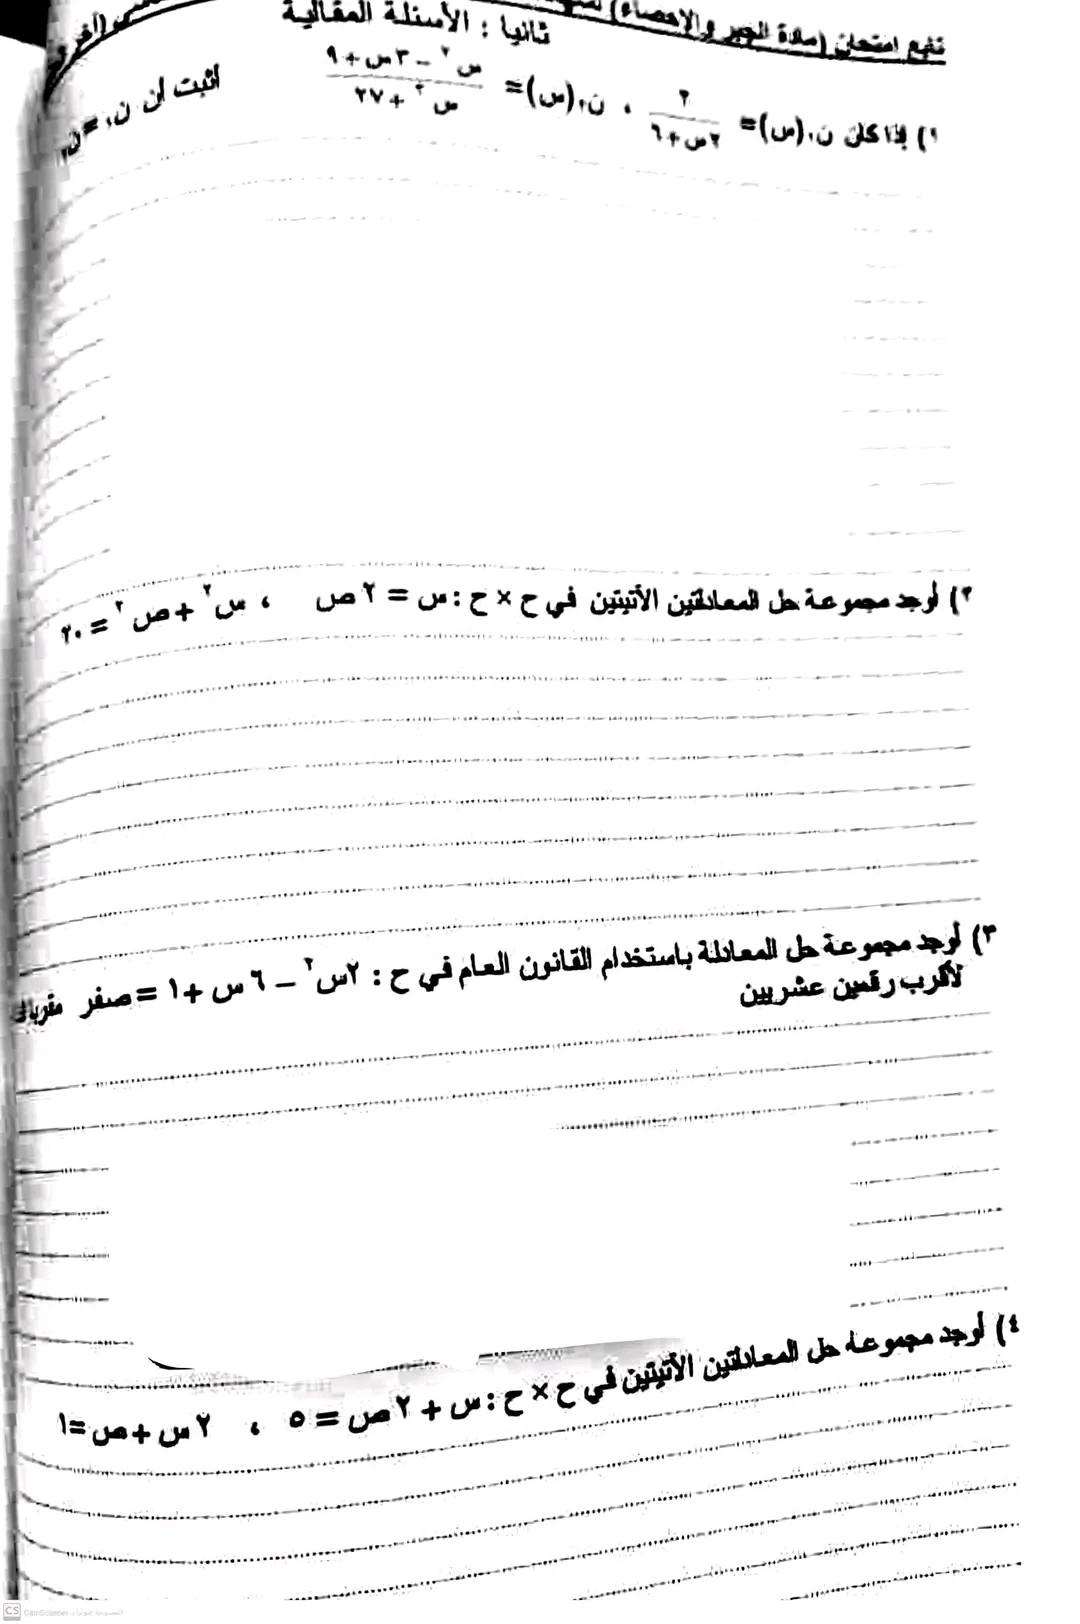 تابع امتحان (مادة الجبر والإحصاء)
ثانيا : الأسئلة المقالية
١) إذا كان ن₁(س)= ٢/(٢س+٦) ، ن₂(س)= (س² – ٣س+٩)/(س³ +٢٧) اثبت أن ن₁ =ن₂
٢) أوجد مجموعة حل المعادلتين الأتيتين في ح × ح : س = ٢ ص ، س² + ص² = ٢٠
٣) أوجد مجموعة حل المعادلة باستخدام القانون العام في ح : ٢س² – ٦ س +١ = صفر مقربا
لأقرب رقمين عشريين
٤) أوجد مجموعة حل المعادلتين الأتيتين في ح × ح : س + ٢ ص = ٥ ، ٢ س + ص =١
CS CamScanner